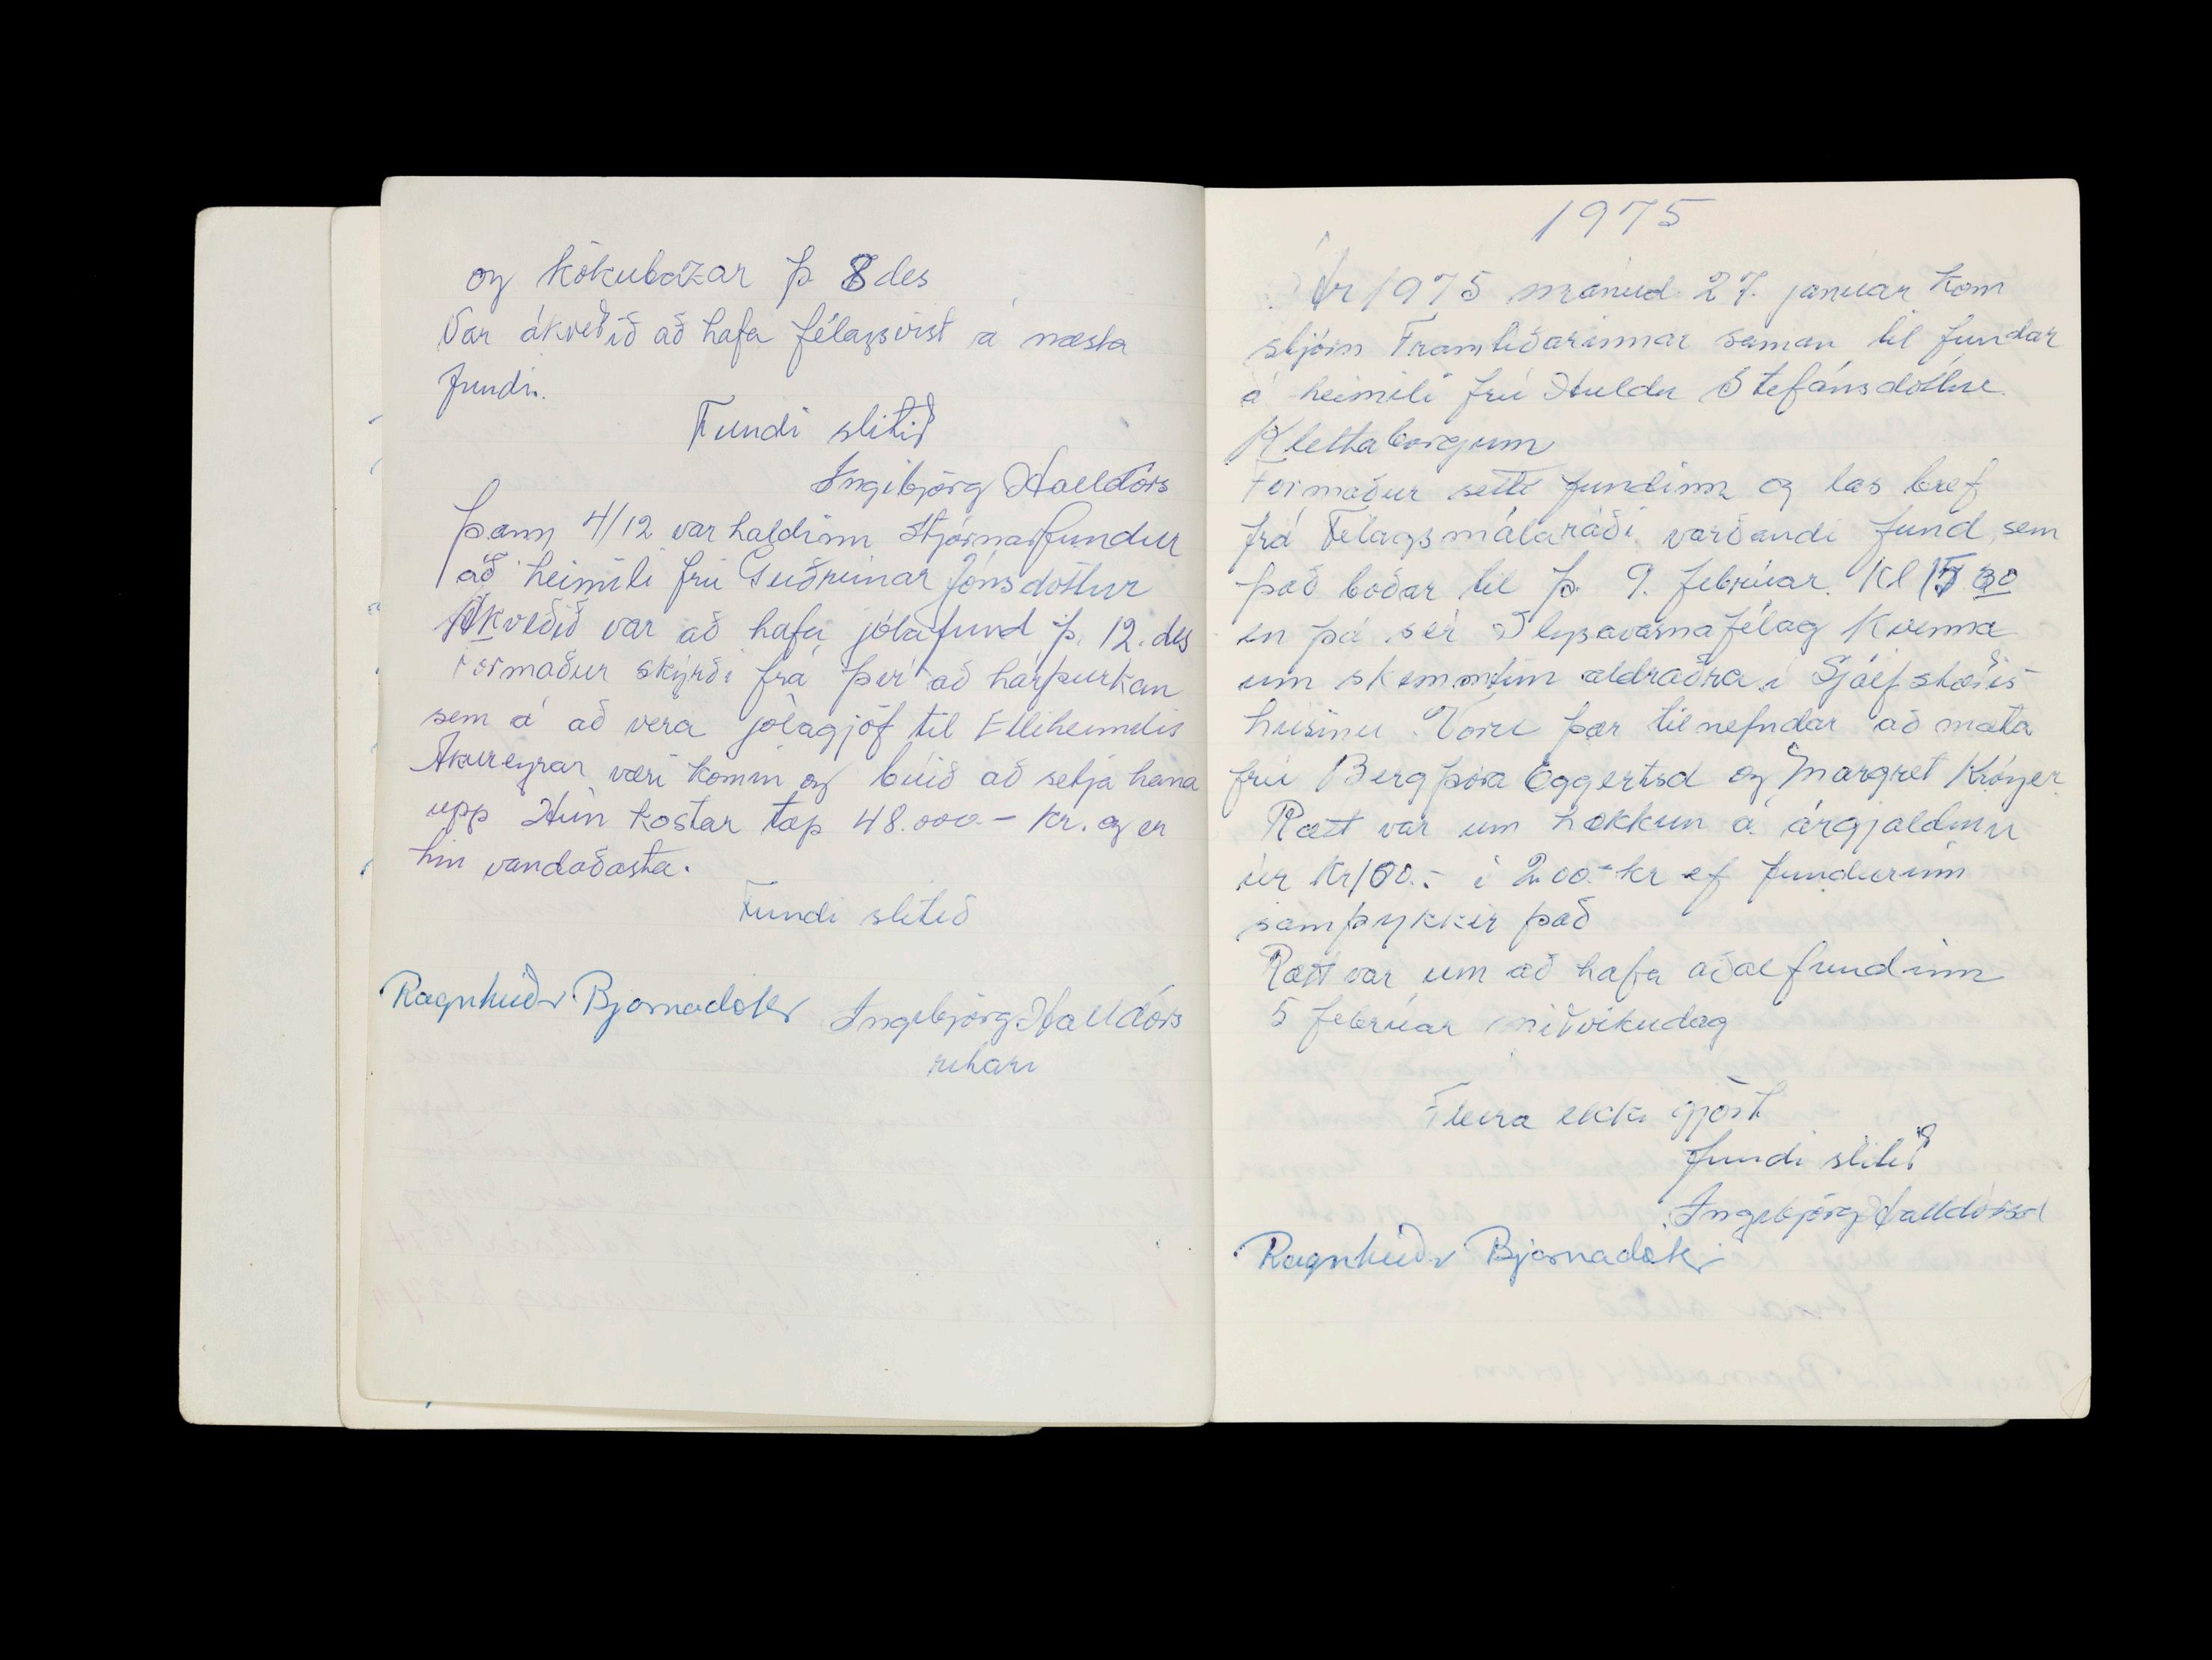 og kökubazar þ 8 des
Var ákveðið að hafa félagsvist á næsta
fundi.
Fundi slitið
Ingibjörg Halldórs
Þann 4/12 var haldinn stjórnarfundur
að heimili frú Guðrúnar Jónsdóttur
Ákveðið var að hafa jólafund þ. 12. des
Formaður skýrði frá því að hárþurkan
sem á að vera jólagjöf til Elliheimilis
Akureyrar væri komin og búið að setja hana
upp Hún kostar tæp 48.000.- kr. og er
hin vandaðasta.
Fundi slitið
Ragnheiður Bjarnadóttir Ingibjörg Halldórs
ritari
1975
Ár 1975 mánud. 27. janúar kom
stjórn Framtíðarinnar saman til fundar
á heimili frú Huldu Stefánsdóttur
Klettaborgum
Formaður setti fundinn og las bref
frá Félagsmálaráði varðandi fund sem
það boðar til þ. 9. febrúar. Kl 15 30
en þá sér Slysavarnafélag Kvenna
um skemmtun aldraðra í Sjálfstæðis
húsinu. Voru þær tilnefndar að mæta
frú Bergþóra Eggertsd og Margret Kröyer
Rætt var um hækkun á árgjaldinu
úr Kr 100.- í 200.- kr ef fundurinn
samþykkir það
Rætt var um að hafa aðalfundinn
5 febrúar miðvikudag
Fleira ekki gjört
fundi slitið
Ingibjörg Halldórsd
Ragnheiður Bjarnadóttir